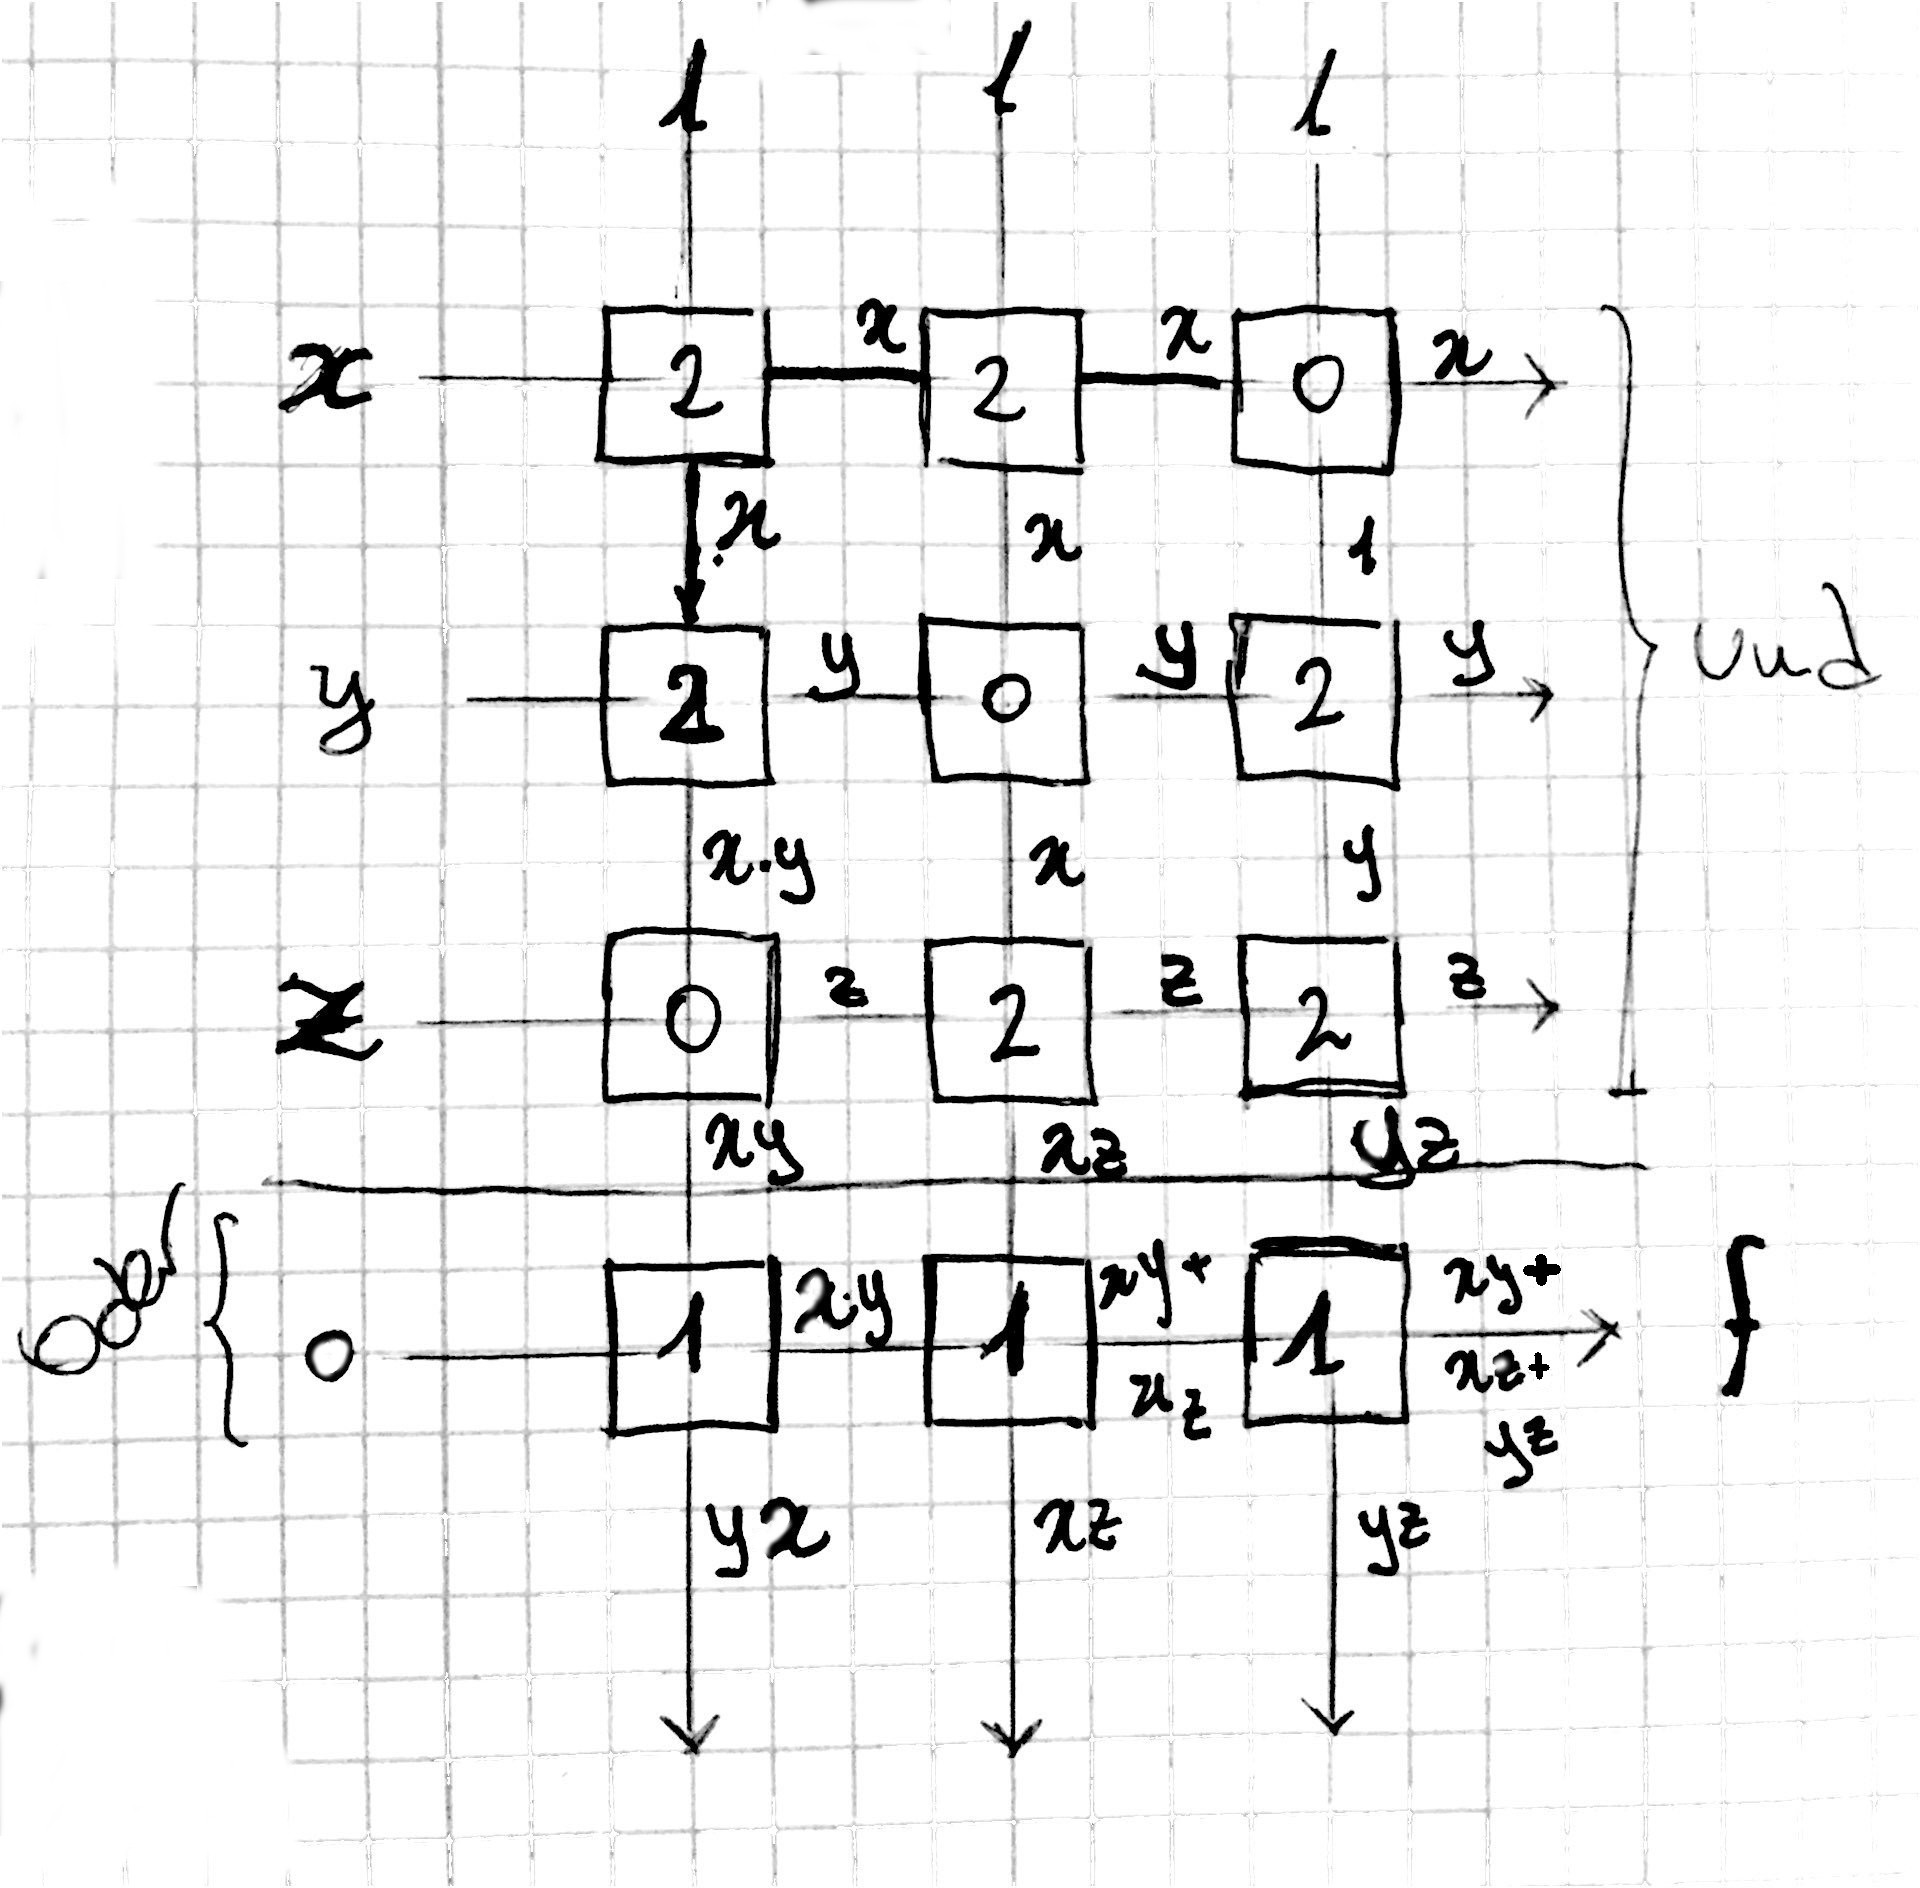 1 1 1
x 2 x 2 x 0 x
x x 1
Und
y 2 y 0 y 2 y
x.y x y
z 0 z 2 z 2 z
xy xz yz
Oder 0 1 x.y 1 xy+ xz 1 xy+ xz+ yz f
yx xz yz